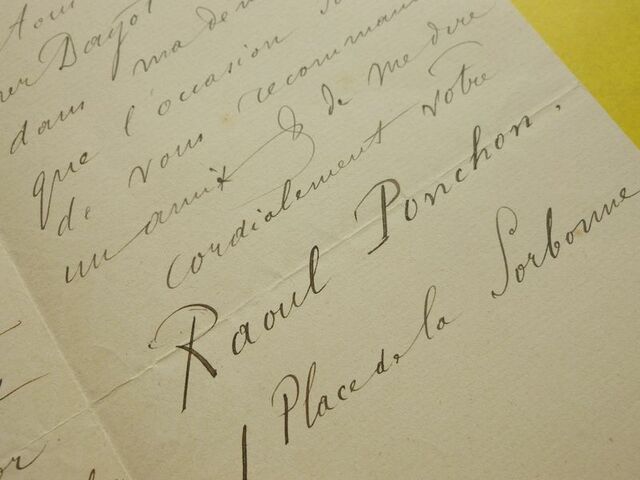 Dayot
dans ma de
que l'occasion
de vous recommand
un ami & de me dire
cordialement votre
Raoul Ponchon.
1 Place de la Sorbonne
or